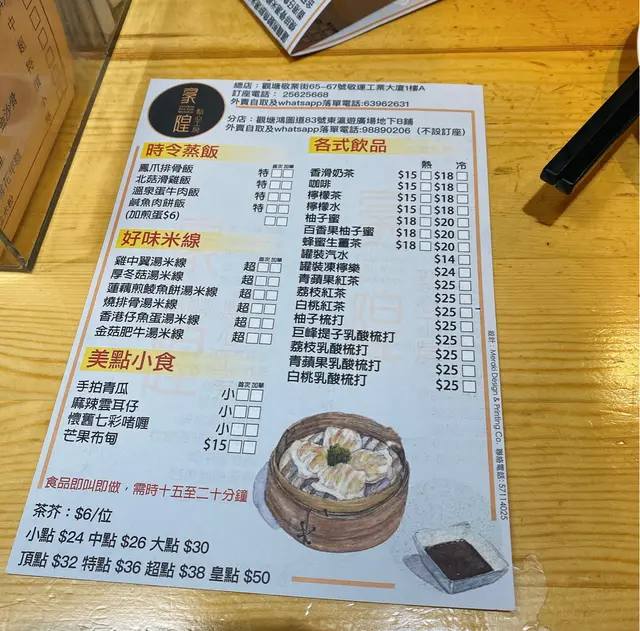 豪隍
點心工房
總店：觀塘敬業街65-67號敬運工業大廈1樓A
訂座電話： 25625668
外賣自取及whatsapp落單電話:63962631
分店：觀塘鴻圖道83號東瀛遊廣場地下B鋪
外賣自取及whatsapp落單電話:98890206 (不設訂座)
時令蒸飯
首次 加單
鳳爪排骨飯 特
北菇滑雞飯 特
溫泉蛋牛肉飯 特
鹹魚肉餅飯 特
(加煎蛋$6)
好味米線
首次 加單
雞中翼湯米線 超
厚冬菇湯米線 超
蓮藕煎鯪魚餅湯米線 超
燒排骨湯米線 超
香港仔魚蛋湯米線 超
金菇肥牛湯米線 超
美點小食
首次 加單
手拍青瓜 小
麻辣雲耳仔 小
懷舊七彩啫喱 小
芒果布甸 $15
各式飲品
熱 冷
香滑奶茶 $15 $18
咖啡 $15 $18
檸檬茶 $15 $18
檸檬水 $15 $18
柚子蜜 $18 $20
百香果柚子蜜 $18 $20
蜂蜜生薑茶 $18 $20
罐裝汽水 $14
罐裝凍檸樂 $24
青蘋果紅茶 $25
荔枝紅茶 $25
白桃紅茶 $25
柚子梳打 $25
巨峰提子乳酸梳打 $25
荔枝乳酸梳打 $25
青蘋果乳酸梳打 $25
白桃乳酸梳打 $25
食品即叫即做，需時十五至二十分鐘
茶芥：$6/位
小點 $24 中點 $26 大點 $30
頂點 $32 特點 $36 超點 $38 皇點 $50
設計：Meraki Design & Printing Co. 聯絡電話: 57114025